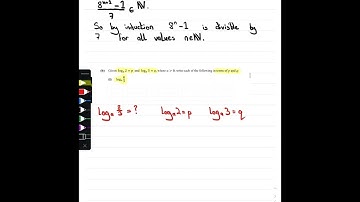 8ⁿ⁺¹ - 1 / 7 ∈ ℕ.
So by induction 8ⁿ-1 is divisible by
7 for all values n∈ℕ.
Given logₐ 2 = p and logₐ 3 = q, where a > 0, write each of the following in terms of p and q.
logₐ 8/3 = ? logₐ2=p logₐ3=q